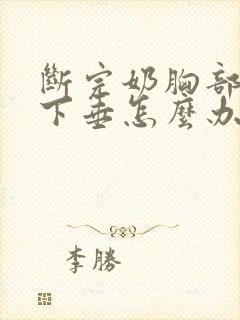 斷完奶胸部
下垂怎麼办
李勝